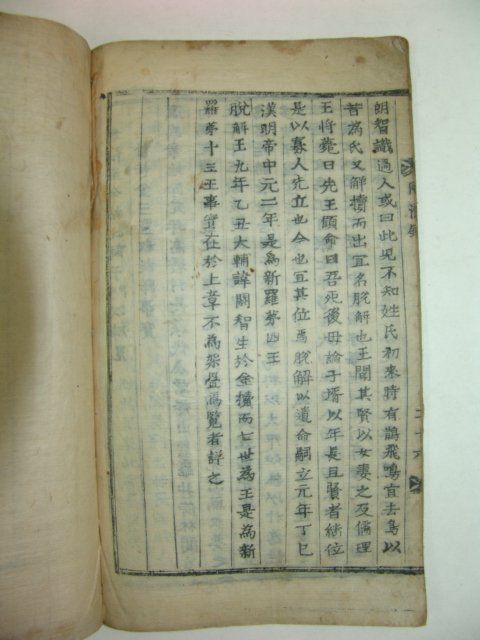 朗智識過人或曰此児不知姓氏初来時有鵲飛鳴宜去鳥以
昔為氏又觧櫝而出宜名脫觧也王聞其賢以女妻之及儒理
王将薨曰先王顧命曰吾死後毋論子壻以年長且賢者継位
是以寡人先立也今也宜其位焉脫解以遺命嗣立元年丁巳
漢明帝中元二年是為新羅第四王
脫解王九年乙丑大輔諱閼智生於金櫝而七世為王是為新
羅第十三王事實在於上章不為架疊焉覧者詳之
二十六